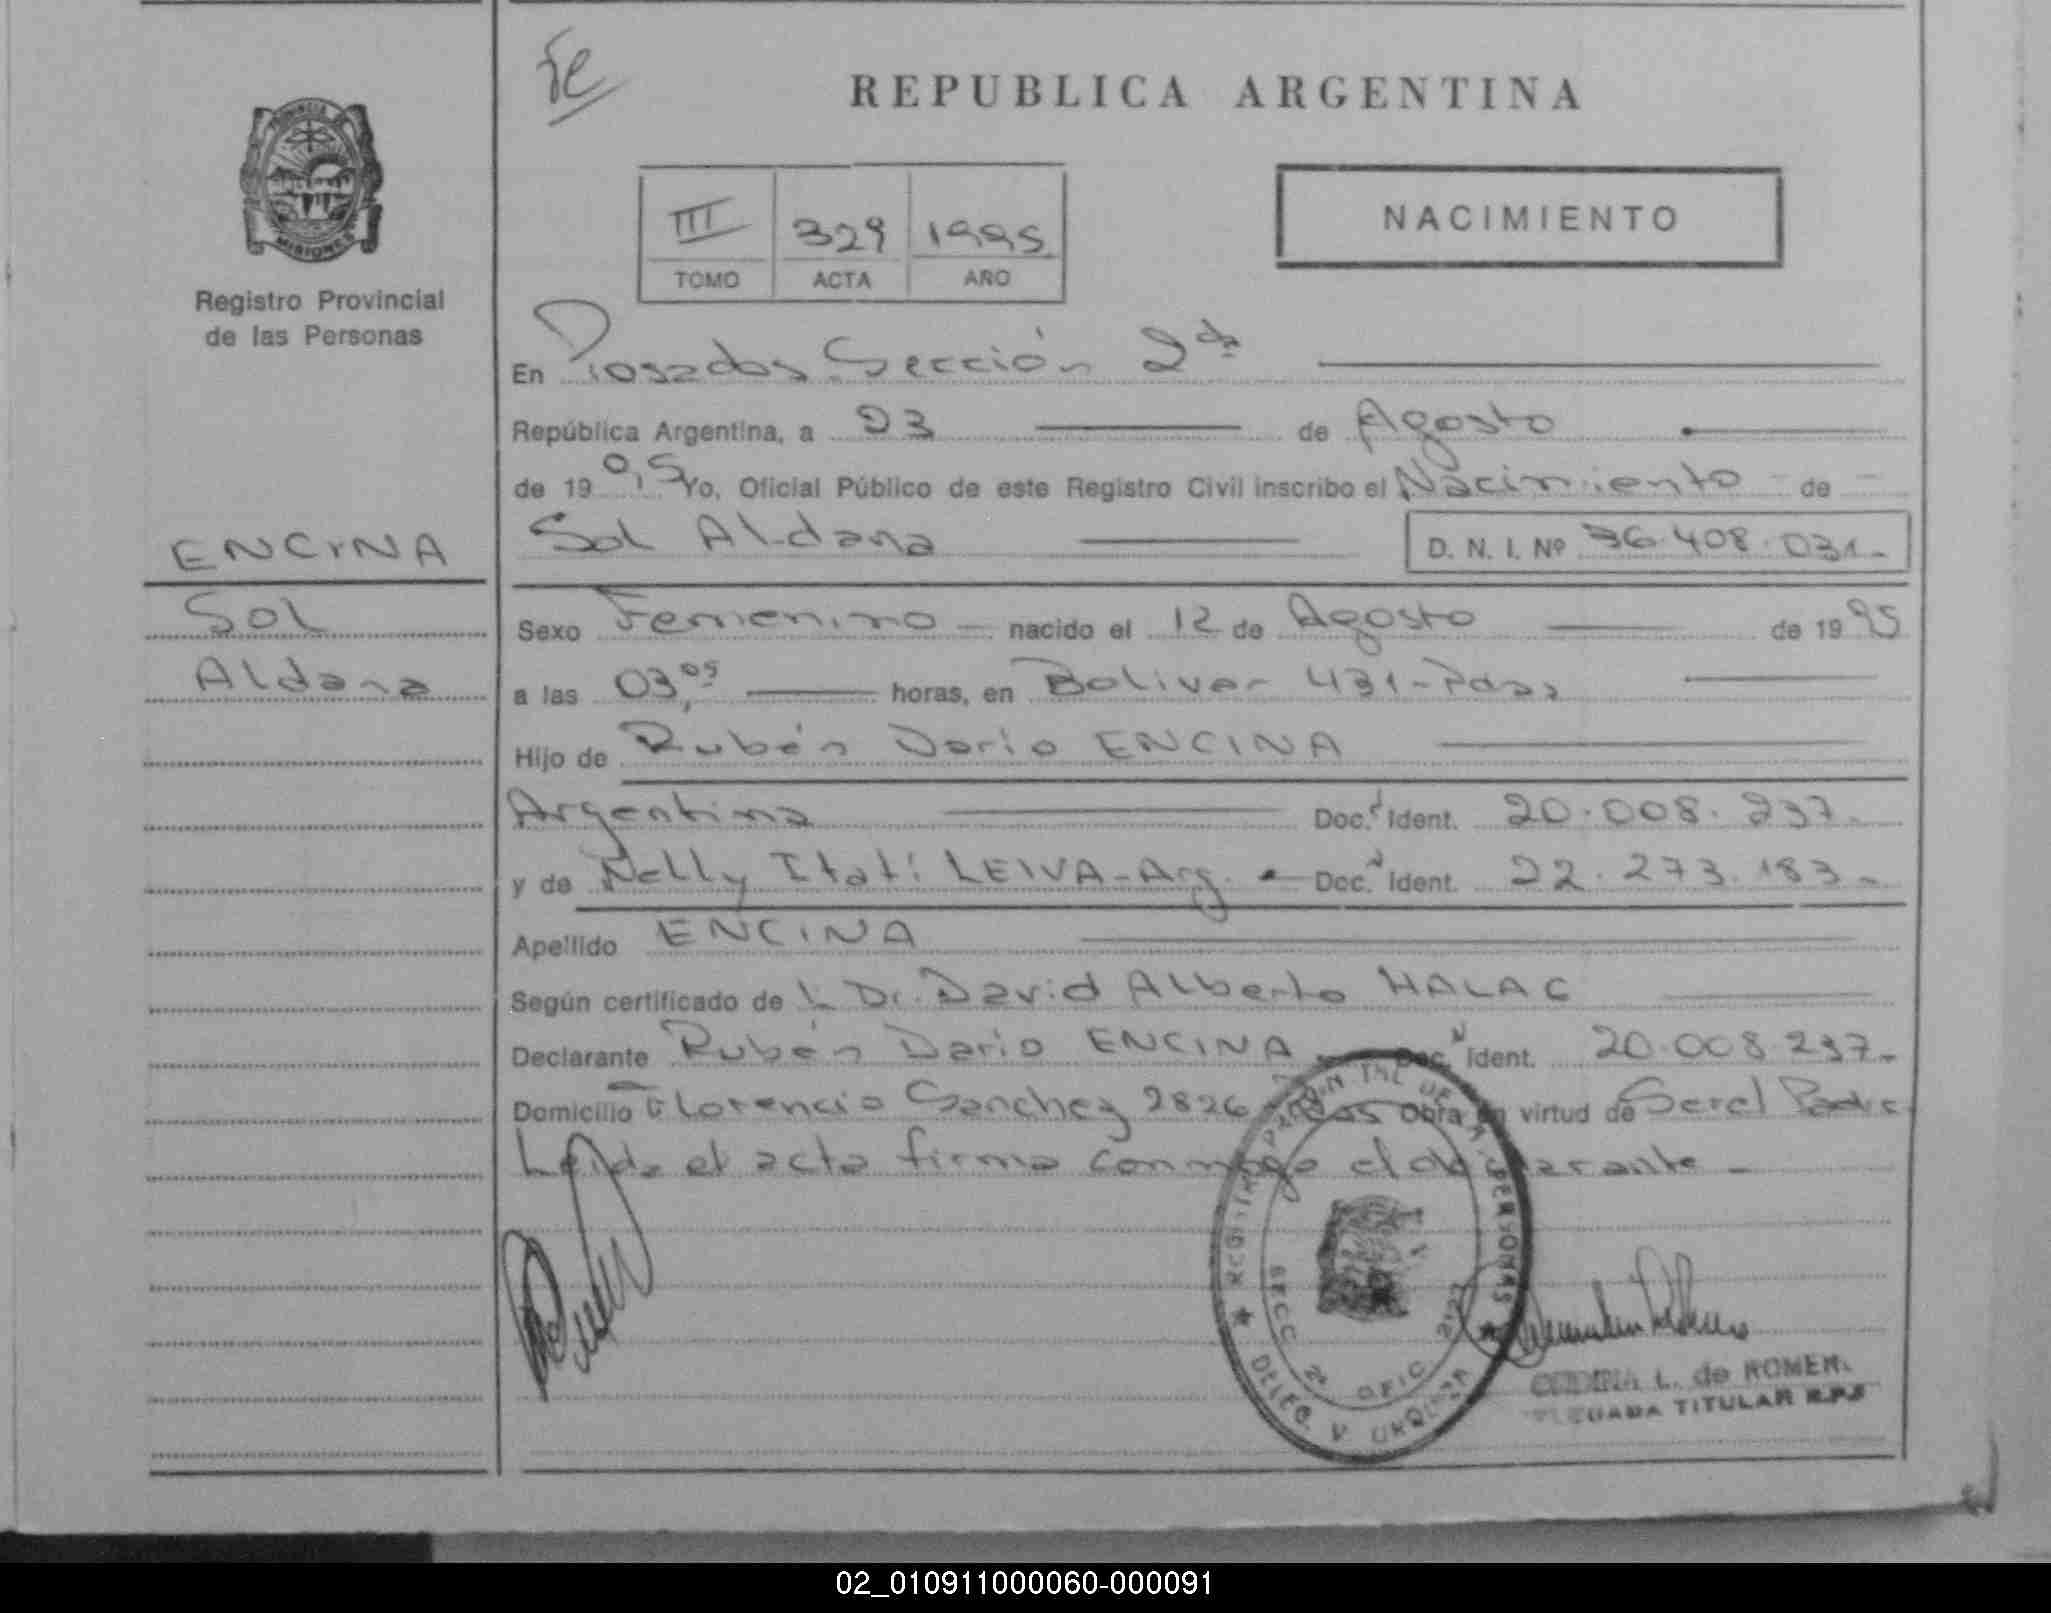 Fe
REPUBLICA ARGENTINA
PROVINCIA DE
MISIONES
Registro Provincial
de las Personas
III 329 1995
TOMO ACTA AÑO
NACIMIENTO
En Posadas Sección 2da
República Argentina, a 23 de Agosto
de 19 95 Yo, Oficial Público de este Registro Civil inscribo el Nacimiento de
Sol Aldana D. N. I. Nº 36.408.031.-
ENCINA
Sol
Aldana
Sexo Femenino nacido el 12 de Agosto de 19 95
a las 03,05 horas, en Bolivar 431-Pdas
Hijo de Rubén Dario ENCINA
Argentina Doc. Ident. 20.008.237.-
y de Nelly Itatí LEIVA-Arg. Doc. Ident. 22.273.183.-
Apellido ENCINA
Según certificado de l Dr. David Alberto HALAC
Declarante Rubén Dario ENCINA Doc. Ident. 20.008.237.-
Domicilio Florencio Sanchez 2826 Pdas Obra en virtud de Ser el Padre
Leída el acta firma conmigo el declarante -
REGISTRO PROVIN. DE LAS PERSONAS
SECC 2ª OFIC
DELEG. V URQUIZA
L. de ROMERO
DELEGADA TITULAR R.P.S
02_010911000060-000091